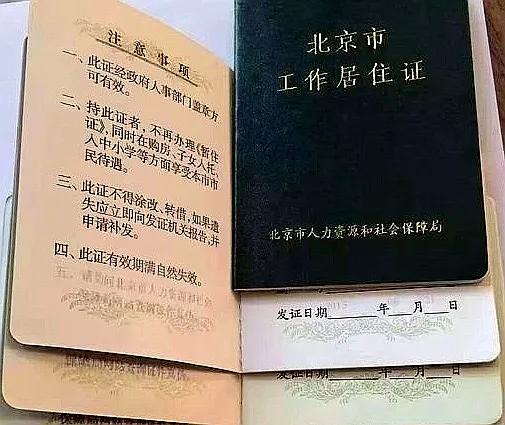 注意事项
一、此证经政府人事部门盖章方
可有效。
二、持此证者，不再办理《暂住
证》，同时在购房、子女入托、
入中小学等方面享受本市市
民待遇。
三、此证不得涂改、转借，如果遗
失应立即向发证机关报告，并
申请补发。
四、此证有效期满自然失效。
五、请访问北京市人力资源和社会
北京市
工作居住证
北京市人力资源和社会保障局
发证日期 年 月 日
发证日期 年 月 日